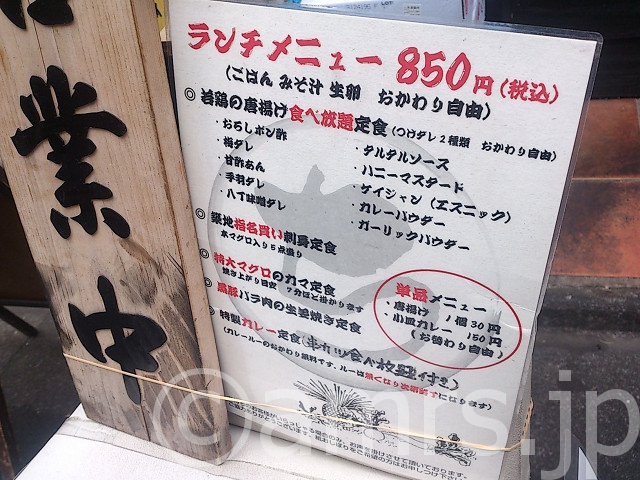 業中
ランチメニュー 850円(税込)
(ごはん みそ汁 生卵 おかわり自由)
◎若鶏の唐揚げ食べ放題定食(つけダレ2種類 おかわり自由)
・おろしポン酢
・梅ダレ
・甘酢あん
・手羽ダレ
・八丁味噌ダレ
・タルタルソース
・ハニーマスタード
・ケイジャン(エスニック)
・カレーパウダー
・ガーリックパウダー
◎築地指名買い刺身定食
本マグロ入り5点盛り
◎特大マグロのカマ定食
焼き上がり目安 7分ほど掛かります
◎黒豚バラ肉の生姜焼き定食
特製カレー定食(串カツ食べ放題付き)
(カレールーのおかわり無料です、ルーは無くなり次第終了になります)
単品メニュー
・唐揚げ 1個30円
・小皿カレー 150円
(お替わり自由)
©amrs.jp